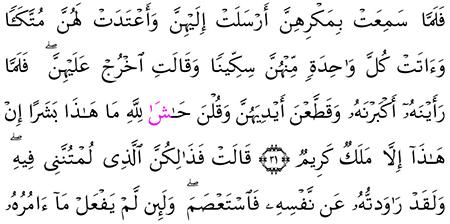 فَلَمَّا سَمِعَتْ بِمَكْرِهِنَّ أَرْسَلَتْ إِلَيْهِنَّ وَأَعْتَدَتْ لَهُنَّ مُتَّكَـًٔا
وَءَاتَتْ كُلَّ وَٰحِدَةٍ مِّنْهُنَّ سِكِّينًا وَقَالَتِ ٱخْرُجْ عَلَيْهِنَّ ۖ فَلَمَّا
رَأَيْنَهُۥٓ أَكْبَرْنَهُۥ وَقَطَّعْنَ أَيْدِيَهُنَّ وَقُلْنَ حَـٰشَ لِلَّهِ مَا هَـٰذَا بَشَرًا إِنْ
هَـٰذَآ إِلَّا مَلَكٌ كَرِيمٌ ﴿٣١﴾ قَالَتْ فَذَٰلِكُنَّ ٱلَّذِى لُمْتُنَّنِى فِيهِ ۖ
وَلَقَدْ رَٰوَدتُّهُۥ عَن نَّفْسِهِۦ فَٱسْتَعْصَمَ ۖ وَلَئِن لَّمْ يَفْعَلْ مَآ ءَامُرُهُۥ